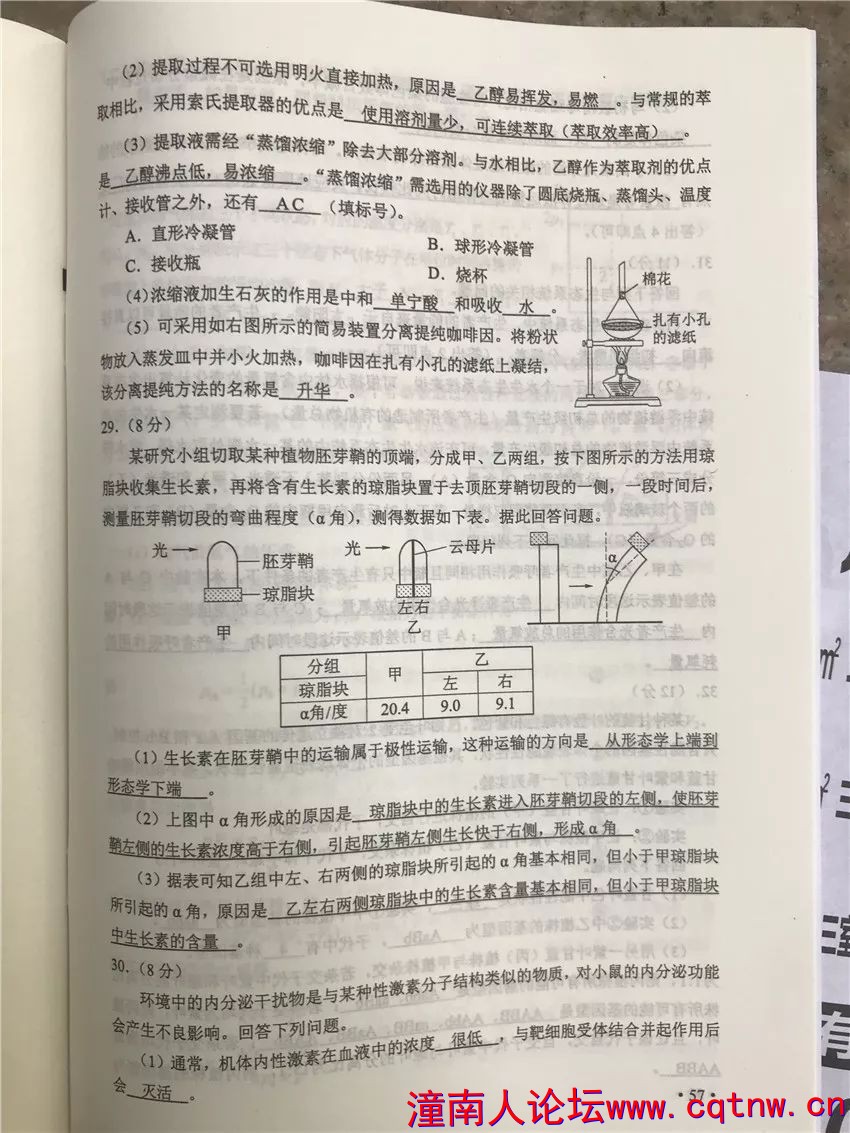 (2)提取过程不可选用明火直接加热，原因是 乙醇易挥发，易燃 。与常规的萃
取相比，采用索氏提取器的优点是 使用溶剂量少，可连续萃取（萃取效率高） 。
(3)提取液需经“蒸馏浓缩”除去大部分溶剂。与水相比，乙醇作为萃取剂的优点
是 乙醇沸点低，易浓缩 。“蒸馏浓缩”需选用的仪器除了圆底烧瓶、蒸馏头、温度
计、接收管之外，还有 AC （填标号）。
A．直形冷凝管
B．球形冷凝管
C．接收瓶
D．烧杯
(4)浓缩液加生石灰的作用是中和 单宁酸 和吸收 水 。
(5)可采用如右图所示的简易装置分离提纯咖啡因。将粉状
物放入蒸发皿中并小火加热，咖啡因在扎有小孔的滤纸上凝结，
该分离提纯方法的名称是 升华 。
棉花
扎有小孔
的滤纸
29．(8分)
某研究小组切取某种植物胚芽鞘的顶端，分成甲、乙两组，按下图所示的方法用琼
脂块收集生长素，再将含有生长素的琼脂块置于去顶胚芽鞘切段的一侧，一段时间后，
测量胚芽鞘切段的弯曲程度（α角），测得数据如下表。据此回答问题。
光
胚芽鞘
琼脂块
甲
光
云母片
左右
乙
α
分组 甲 乙
琼脂块 左 右
α角/度 20.4 9.0 9.1
(1)生长素在胚芽鞘中的运输属于极性运输，这种运输的方向是 从形态学上端到
形态学下端 。
(2)上图中α角形成的原因是 琼脂块中的生长素进入胚芽鞘切段的左侧，使胚芽
鞘左侧的生长素浓度高于右侧，引起胚芽鞘左侧生长快于右侧，形成α角 。
(3)据表可知乙组中左、右两侧的琼脂块所引起的α角基本相同，但小于甲琼脂块
所引起的α角，原因是 乙左右两侧琼脂块中的生长素含量基本相同，但小于甲琼脂块
中生长素的含量 。
30．(8分)
环境中的内分泌干扰物是与某种性激素分子结构类似的物质，对小鼠的内分泌功能
会产生不良影响。回答下列问题。
(1)通常，机体内性激素在血液中的浓度 很低 ，与靶细胞受体结合并起作用后
会 灭活 。
·57·
潼南人论坛www.cqtnw.cn